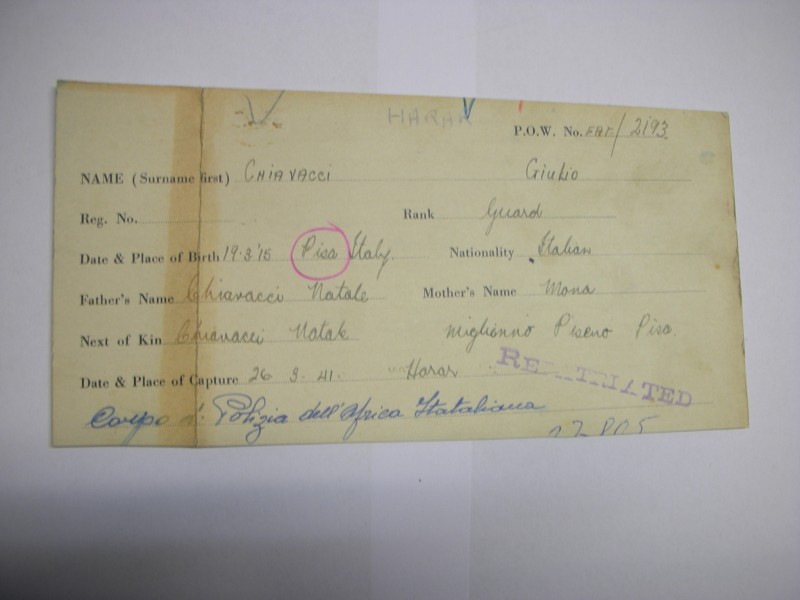 HARAR
P.O.W. No. EAF/2193
NAME (Surname first) CHIAVACCI Giulio
Reg. No. Rank Guard
Date & Place of Birth 19.3.'15 Pisa Italy. Nationality Italian
Father's Name Chiavacci Natale Mother's Name Mona
Next of Kin Chiavacci Natale Miglianno Piseno Pisa.
Date & Place of Capture 26 3.41. Harar
REPATRIATED
Corpo di Polizia dell'Africa Itataliana